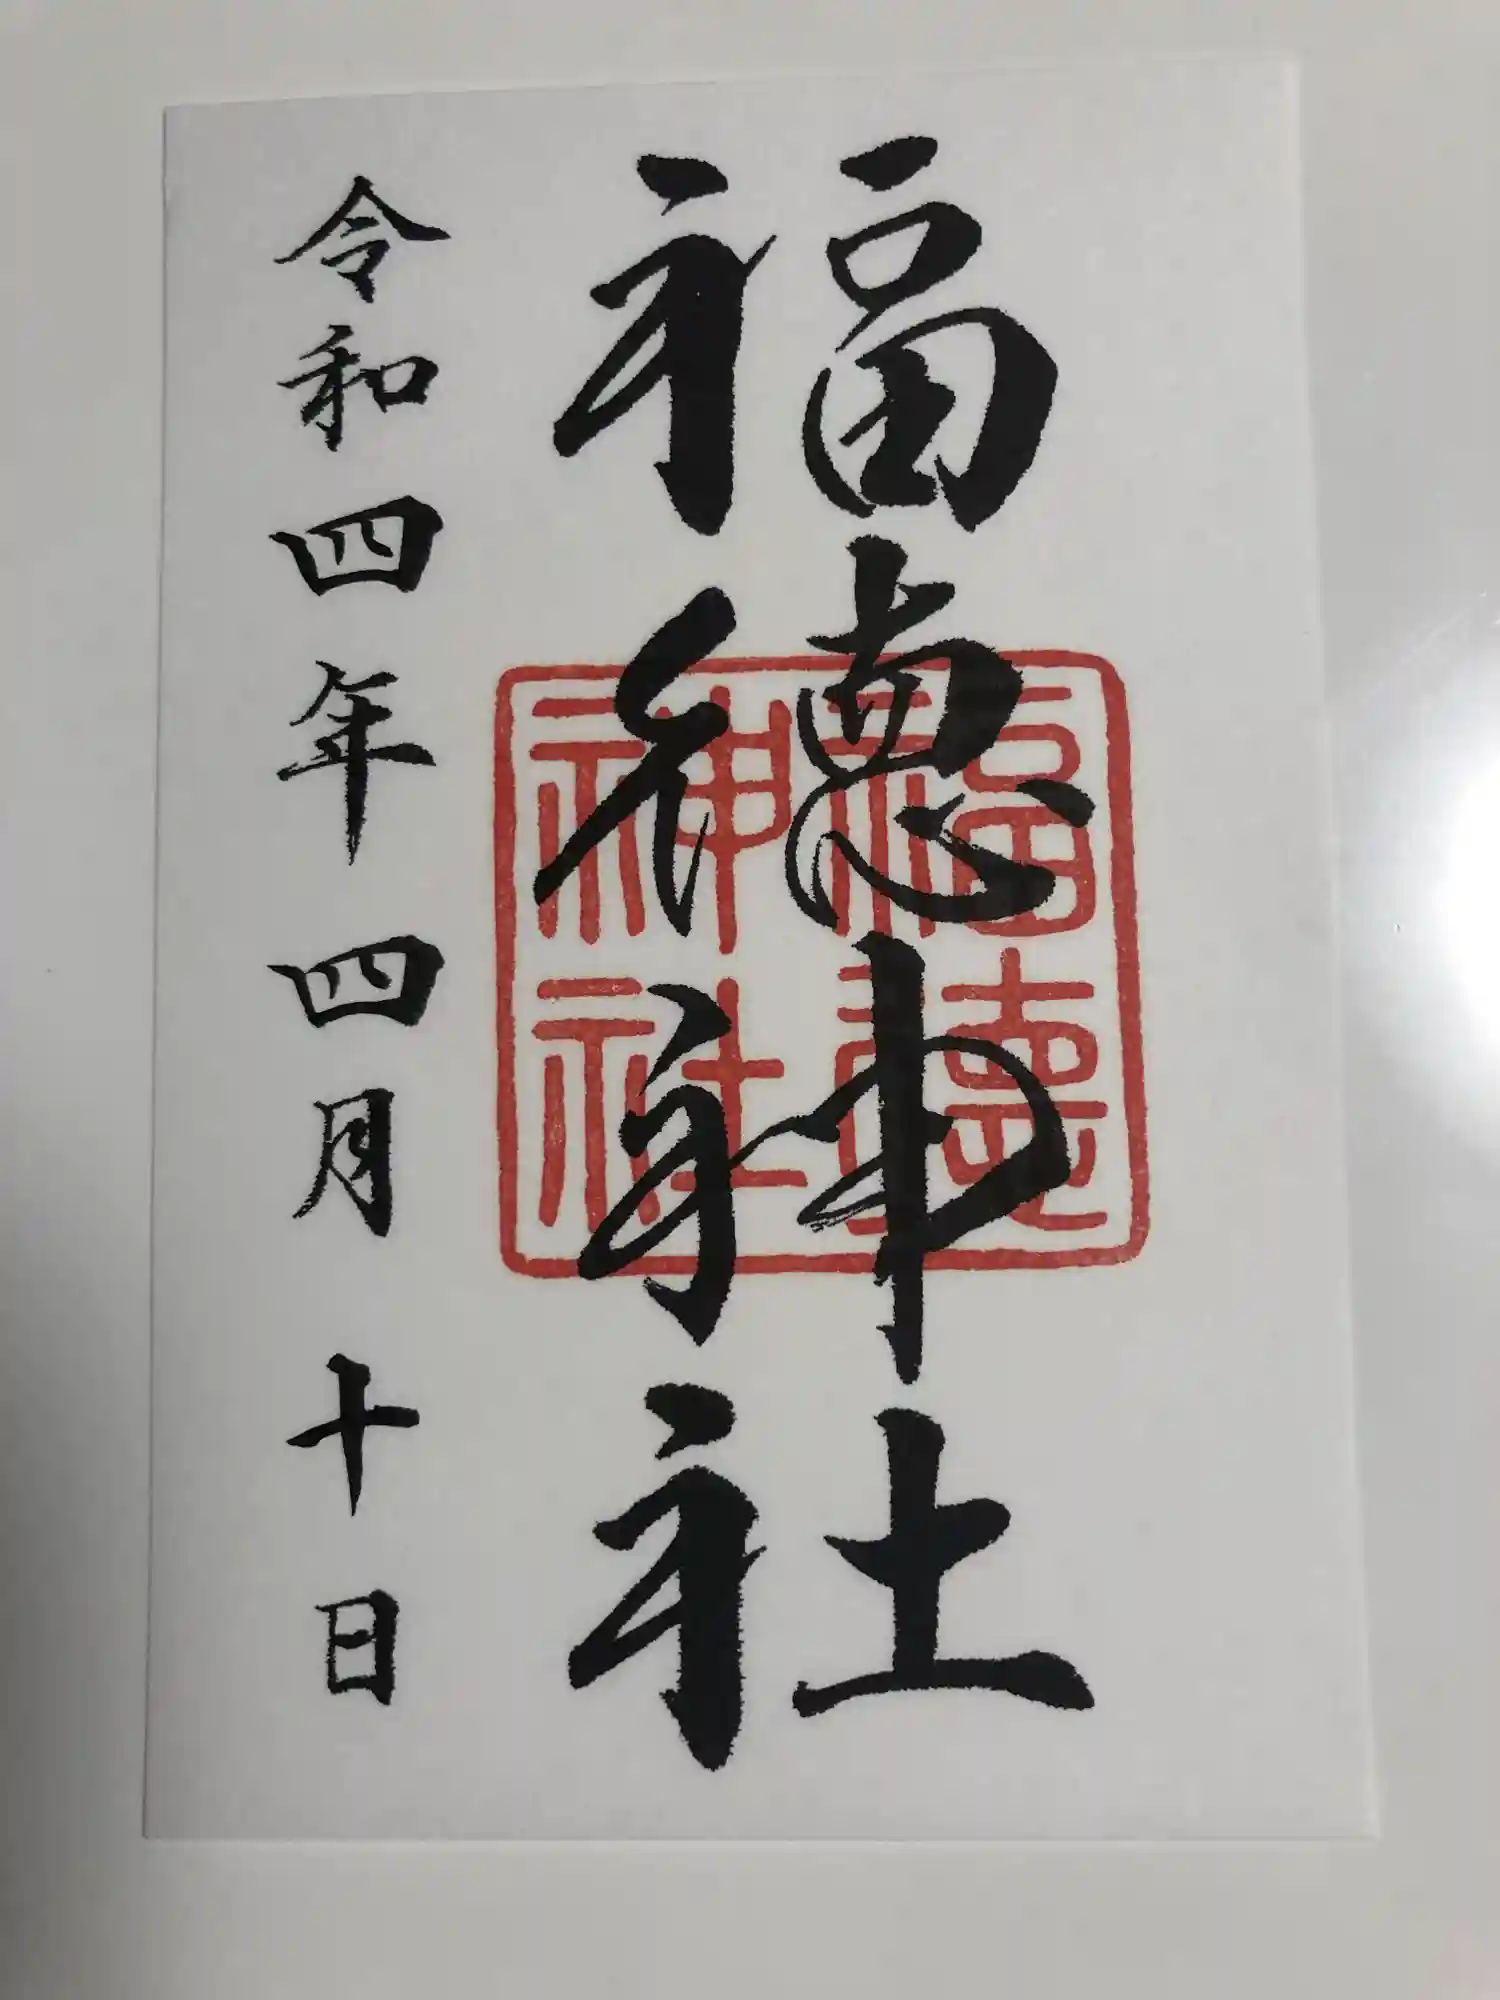 福徳神社
福徳神社
令和四年四月十日